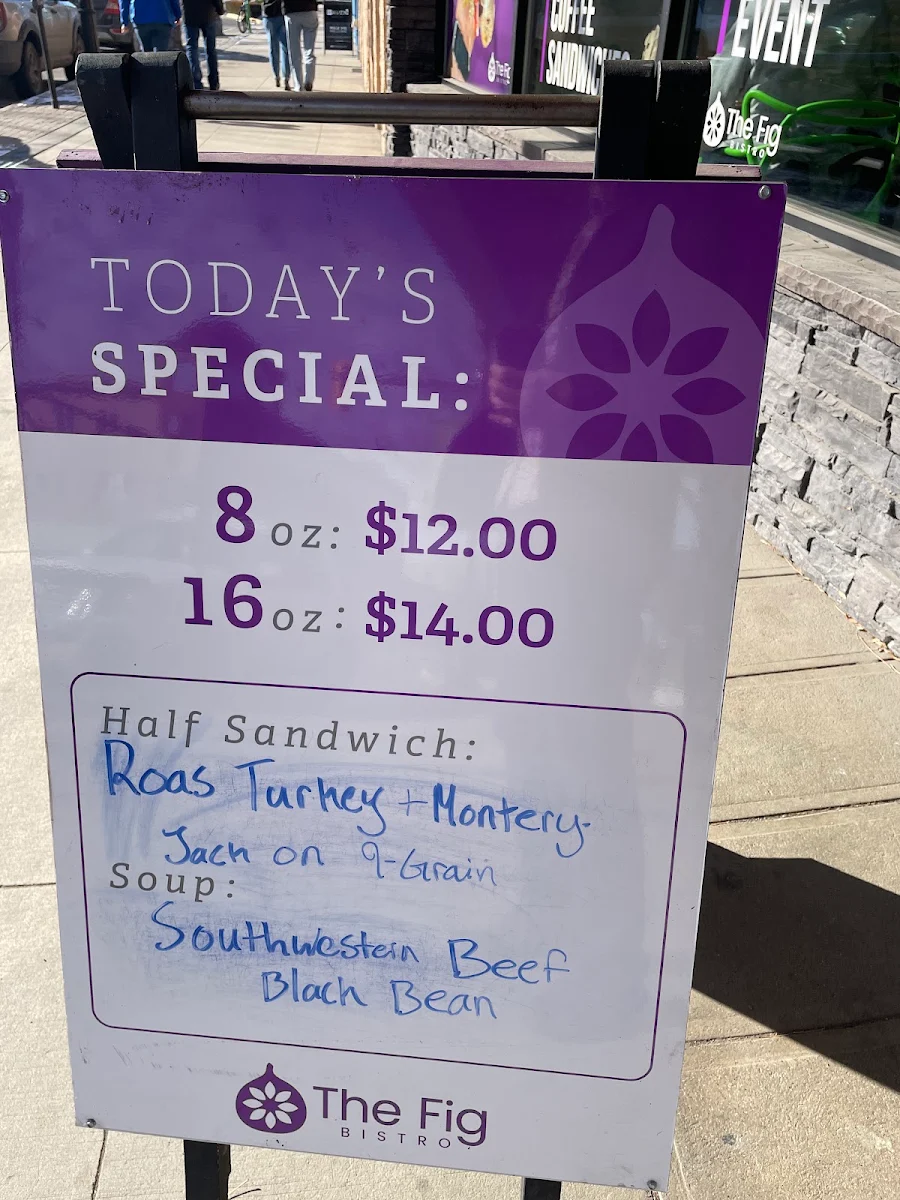 COFFEE
SANDWICHES
The Fig
EVENT
The Fig
BISTRO
TODAY'S
SPECIAL:
8 oz: $12.00
16 oz: $14.00
Half Sandwich:
Roas Turkey + Montery
Jack on 9-Grain
Soup:
Southwestern Beef
Black Bean
The Fig
BISTRO